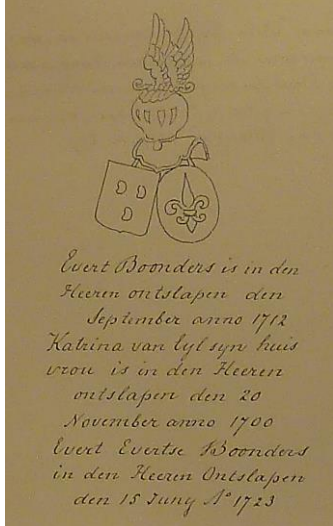 Evert Boonders is in den
Heeren ontslapen den
September anno 1712
Katrina van Lyl syn huis
vrou is in den Heeren
ontslapen den 20
November anno 1700
Evert Evertse Boonders
in den Heeren Ontslapen
den 15 Juny A° 1723